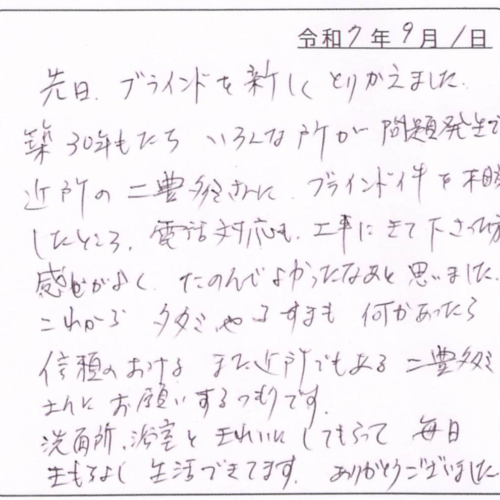 令和7年9月1日
先日、ブラインドを新しくとりかえました。
築30年もたち いろんな所が問題発生で
近所の二豊タタミさんに、ブラインド件を相
したところ、電話対応も、工事にきて下さった方
感じがよく、たのんでよかったなあと思いました。
これから タタミやふすまも 何かあったら
信頼のおける また近所でもある 二豊タタミ
さんに お願いするつもりです。
洗面所、浴室ときれいにしてもらって 毎日
きもちよく 生活できてます。ありがとうございました